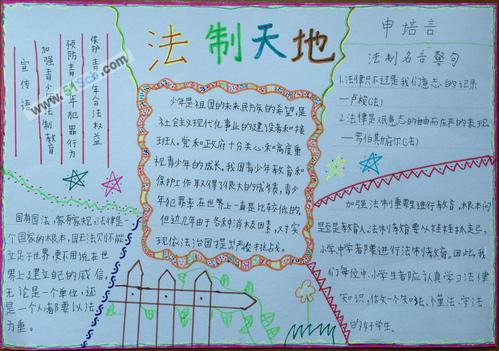 法制天地
保护青少年合法权益
预防青少年犯罪行为
加强青少年法制教育
宣传法
www.51Sch.com
少年是祖国的未来,民族的希望,是
社会主义现代化事业的建设者和接
班人。党和政府十分关心和高度重
视青少年的成长。我国青少年教育和
保护工作取得了很大的成绩,青少
年犯罪率在世界上一直是比较低的。
但近几年由于各种消极因素,
现依法治国
申培言
法制名言警句
1.法律只不过是我们意志的记录
—卢梭(法)
2.法律是人民意志的自由而庄严的表现
—罗伯斯庇尔(法)
国有国法,家有家规,法律是一
个国家的根本,国无法则不能
立足于世界,更不用说在世
界上建立自己的威信,
无论是一个单位,还
是一个人都要以法
为重。
加强法制很重要
要从娃娃抓起,
小学,中学都要进行法制教育。因此,我
们每位中、小学生都应认真学习法律
知识,做一个知法、懂法、守法
的好学生。